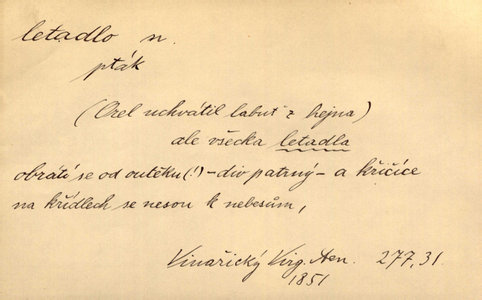 letadlo n.
pták
(Orel uchvátil labuť z hejna)
ale všecka letadla
obrátí se od outěku (!) – div patrný – a křičíce
na křídlech se nesou k nebesům,
Vinařický Virg. Aen. 277,31
1851